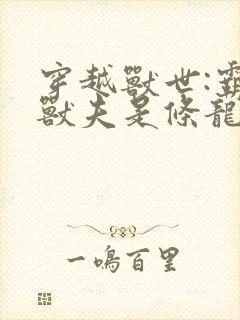 穿越獸世:靈
獸夫是條龍
一鳴百里